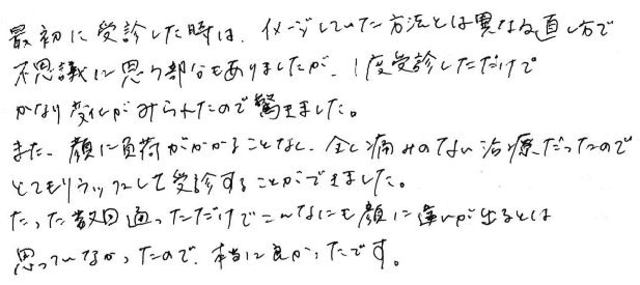 最初に受診した時は、イメージしていた方法とは異なる直し方で
不思議に思う部分もありましたが、1度受診しただけで
かなり変化がみられたので驚きました。
また、顔に負荷がかかることなく、全く痛みのない治療だったので
とてもリラックスして受診することができました。
たった数回通っただけでこんなにも顔に違いが出るとは
思っていなかったので、本当に良かったです。